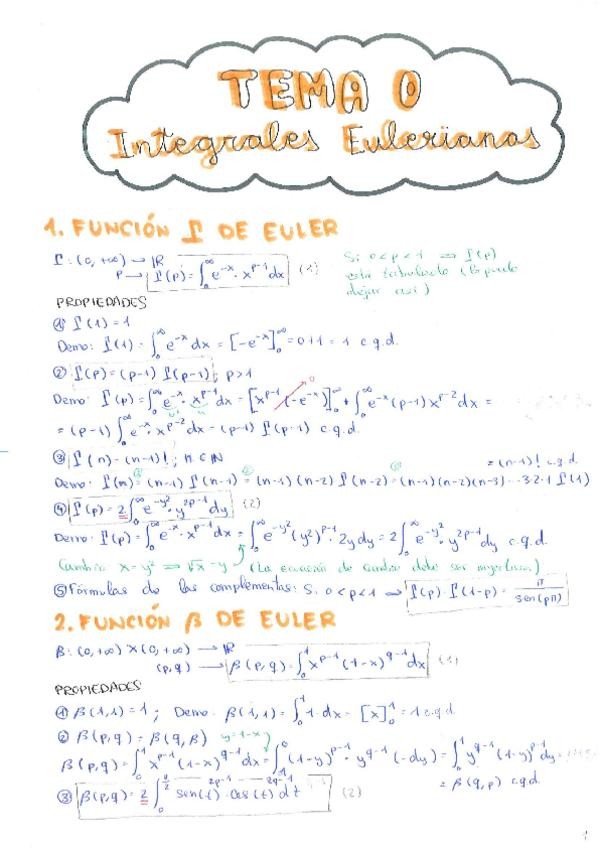 TEMA 0
Integrales Eulerianas
1. FUNCIÓN Γ DE EULER
Γ: (0, +∞) → ℝ
p → Γ(p) = ∫₀^∞ e^{-x} · x^{p-1} dx (1)
Si 0 < p < 1 ⇒ Γ(p)
esta tabulada (lo puedo
dejar así)
PROPIEDADES
① Γ(1) = 1
Demo: Γ(1) = ∫₀^∞ e^{-x} dx = [-e^{-x}]₀^∞ = 0+1 = 1 c.q.d.
② Γ(p) = (p-1) Γ(p-1); p>1
Demo: Γ(p) = ∫₀^∞ e^{-x} · x^{p-1} dx = [x^{p-1} (-e^{-x})]₀^∞ + ∫₀^∞ e^{-x} (p-1) x^{p-2} dx =
= (p-1) ∫₀^∞ e^{-x} · x^{p-2} dx = (p-1) Γ(p-1) c.q.d.
③ Γ(n) = (n-1)!; n ∈ ℕ
Demo: Γ(n) = (n-1) Γ(n-1) = (n-1)(n-2) Γ(n-2) = (n-1)(n-2)(n-3)···3·2·1 Γ(1)
= (n-1)! c.q.d.
④ Γ(p) = 2 ∫₀^∞ e^{-y²} · y^{2p-1} dy (2)
Demo: Γ(p) = ∫₀^∞ e^{-x} · x^{p-1} dx = ∫₀^∞ e^{-y²} (y²)^{p-1} · 2y dy = 2 ∫₀^∞ e^{-y²} · y^{2p-1} dy c.q.d.
Cambio: x = y² ⇒ √x = y (La ecuación de cambio debe ser inyectiva)
⑤ Fórmulas de los complementos: Si 0 < p < 1 ⇒ Γ(p) · Γ(1-p) = π / sen(pπ)
2. FUNCIÓN β DE EULER
β: (0, +∞) × (0, +∞) → ℝ
(p,q) → β(p,q) = ∫₀¹ x^{p-1} (1-x)^{q-1} dx (1)
PROPIEDADES
① β(1,1) = 1; Demo: β(1,1) = ∫₀¹ 1·dx = [x]₀¹ = 1 c.q.d.
② β(p,q) = β(q,p) y = 1-x
β(p,q) = ∫₀¹ x^{p-1} (1-x)^{q-1} dx = ∫₁⁰ (1-y)^{p-1} · y^{q-1} (-dy) = ∫₀¹ y^{q-1} (1-y)^{p-1} dy
= β(q,p) c.q.d.
③ β(p,q) = 2 ∫₀^{π/2} sen(t)^{2p-1} · cos(t)^{2q-1} dt (2)
1